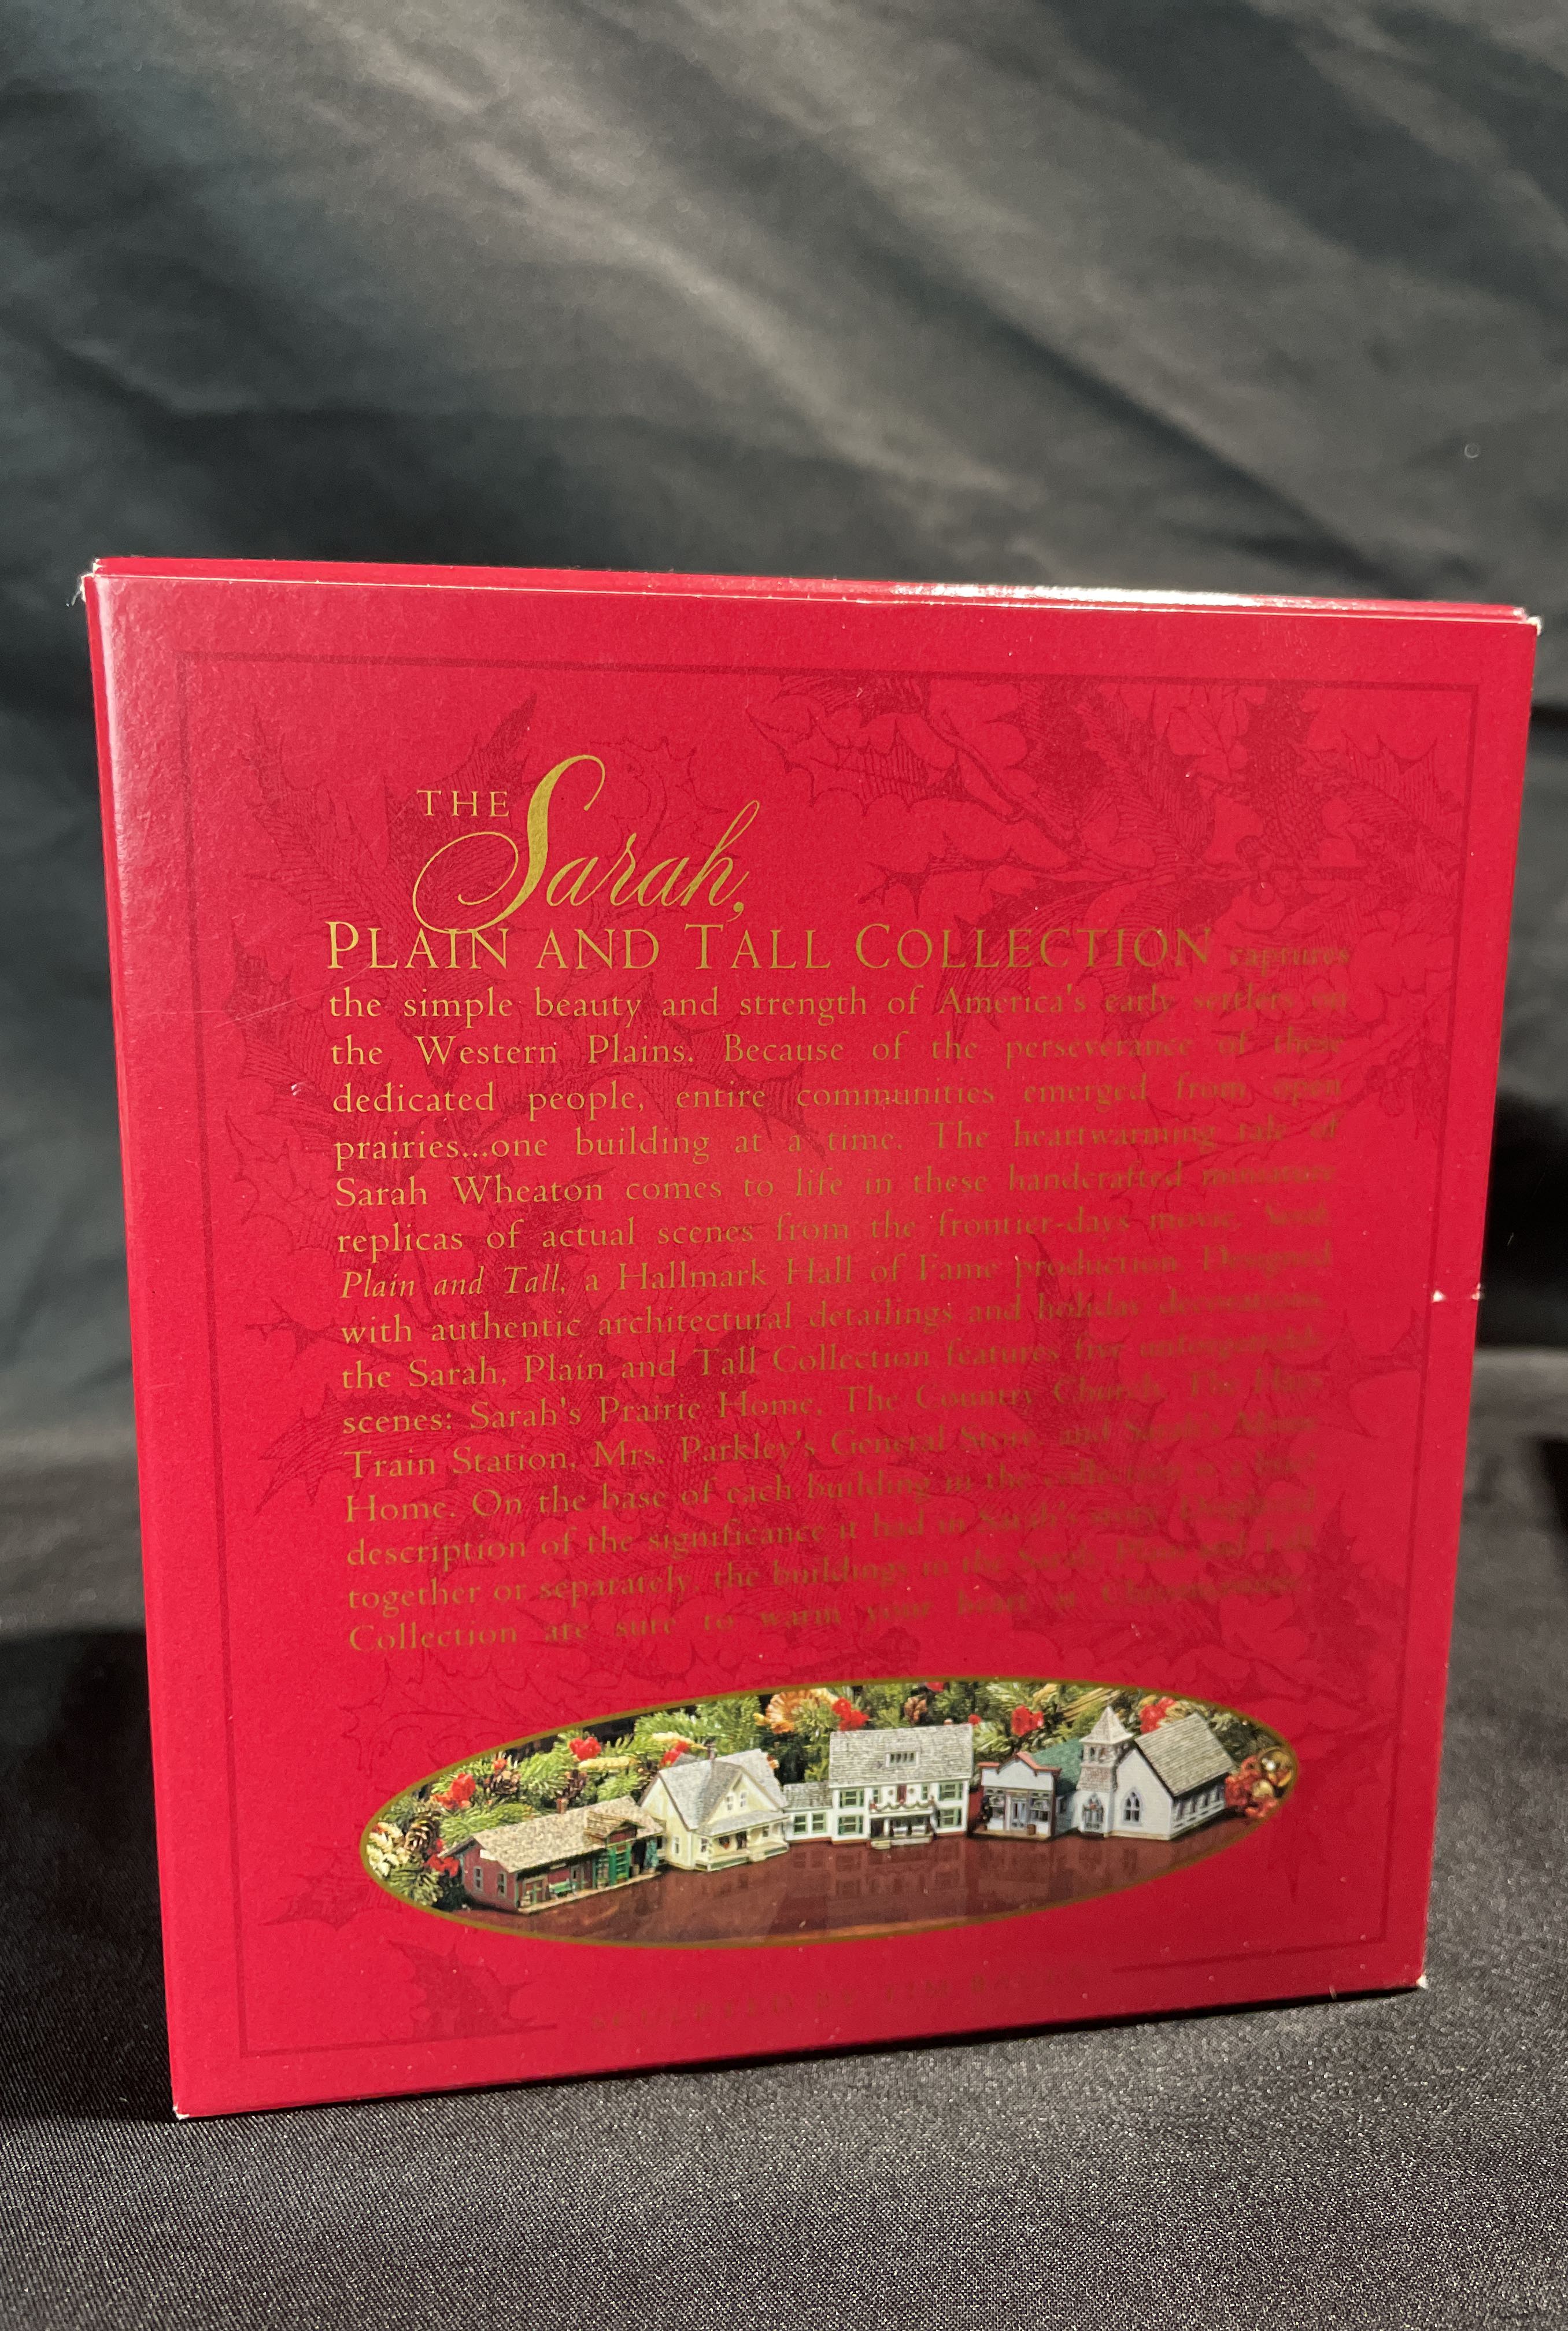 THE Sarah,
PLAIN AND TALL COLLECTION captures
the simple beauty and strength of America's early settlers on
the Western Plains. Because of the perseverance of these
dedicated people, entire communities emerged from open
prairies...one building at a time. The heartwarming tale of
Sarah Wheaton comes to life in these handcrafted miniature
replicas of actual scenes from the frontier-days movie, Sarah,
Plain and Tall, a Hallmark Hall of Fame production. Designed
with authentic architectural detailings and holiday decorations,
the Sarah, Plain and Tall Collection features five unforgettable
scenes: Sarah's Prairie Home, The Country Church, The Hays
Train Station, Mrs. Parkley's General Store, and Sarah's Maine
Home. On the base of each building in the collection is a brief
description of the significance it had in Sarah's story. Displayed
together or separately, the buildings in the Sarah, Plain and Tall
Collection are sure to warm your heart at